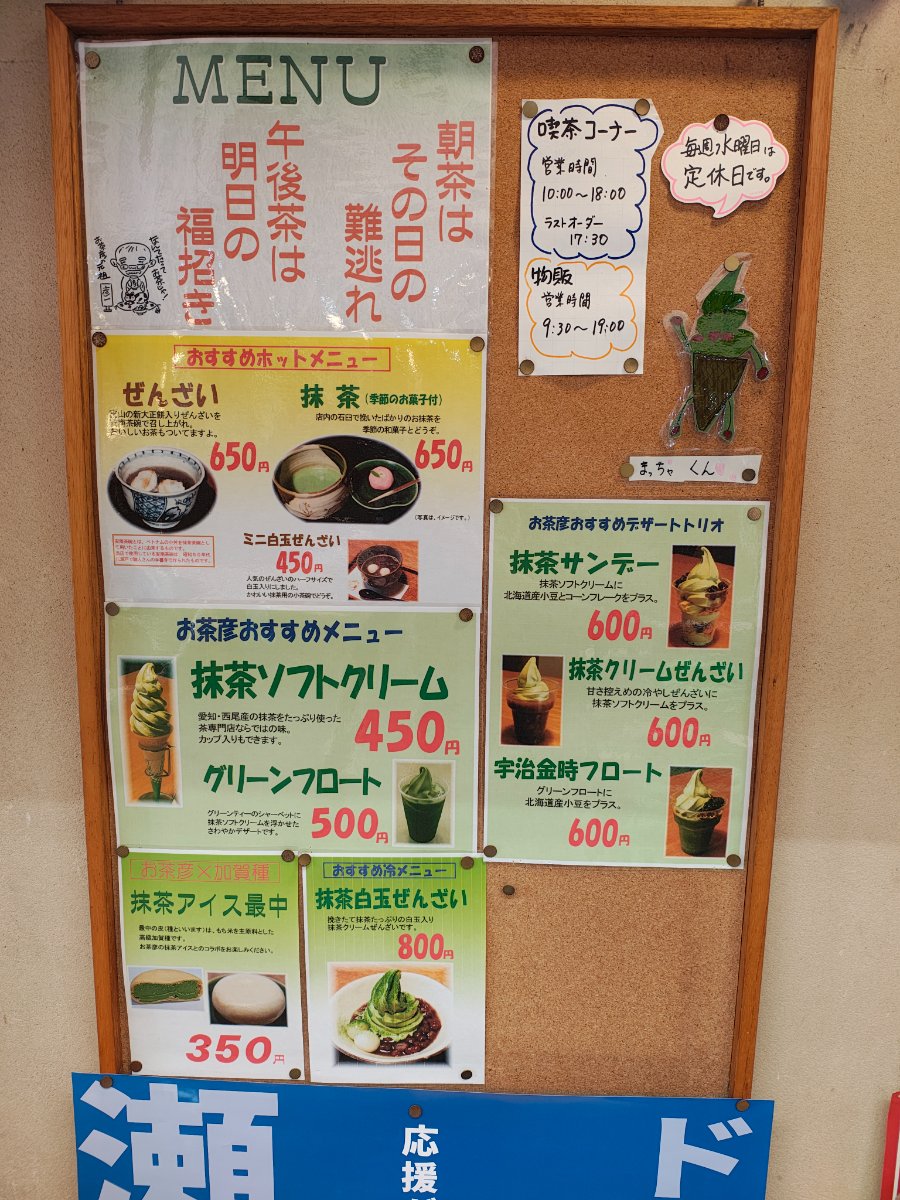 MENU
朝茶は
その日の
難逃れ
午後茶は
明日の
福招き
お茶彦の元祖
喫茶コーナー
営業時間
10:00〜18:00
ラストオーダー
17:30
物販
営業時間
9:30〜19:00
毎週水曜日は
定休日です。
まっちゃ くん
おすすめホットメニュー
ぜんざい
山の新大正餅入りぜんざいを
南茶碗で召し上がれ。
おいしいお茶もついてますよ。
650円
抹茶(季節のお菓子付)
店内の石臼で挽いたばかりのお抹茶を
季節の和菓子とどうぞ。
650円
(写真は、イメージです。)
ミニ白玉ぜんざい
450円
人気のぜんざいのハーフサイズで
白玉入りにしました。
かわいい抹茶用の小茶碗でどうぞ。
お茶彦おすすめメニュー
抹茶ソフトクリーム
愛知・西尾産の抹茶をたっぷり使った
茶専門店ならではの味。
カップ入りもできます。
450円
グリーンフロート
グリーンティーのシャーベットに
抹茶ソフトクリームを浮かせた
さわやかデザートです。
500円
お茶彦おすすめデザートトリオ
抹茶サンデー
抹茶ソフトクリームに
北海道産小豆とコーンフレークをプラス。
600円
抹茶クリームぜんざい
甘さ控えめの冷やしぜんざいに
抹茶ソフトクリームをプラス。
600円
宇治金時フロート
グリーンフロートに
北海道産小豆をプラス。
600円
お茶彦×加賀種
抹茶アイス最中
最中の皮(種といいます)は、もち米を主原料とした
高級加賀種です。
お茶彦の抹茶アイスとのコラボをお楽しみください。
350円
おすすめ冷メニュー
抹茶白玉ぜんざい
挽きたて抹茶たっぷりの白玉入り
抹茶クリームぜんざいです。
800円
瀬
応援
ド